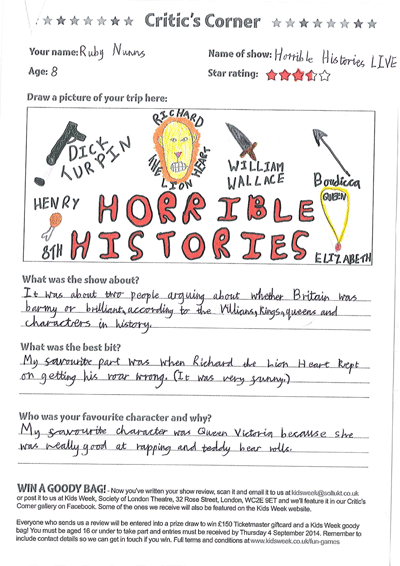 Critic's Corner
Your name: Ruby Nunns
Name of show: Horrible Histories LIVE
Age: 8
Star rating:
Draw a picture of your trip here:
DICK TURPIN
RICHARD THE LION HEART
WILLIAM WALLACE
Boudicca
HENRY 8TH
QUEEN ELIZABETH
HORRIBLE
HISTORIES
What was the show about?
It was about two people arguing about whether Britain was
barmy or brilliant, according to the Villians, Kings, queens and
charactrers in history.
What was the best bit?
My favourite part was when Richard the Lion Heart Kept
on getting his roar wrong. (It was very funny.)
Who was your favourite character and why?
My favourite character was Queen Victoria because she
was really good at rapping and teddy bear rolls.
WIN A GOODY BAG! - Now you've written your show review, scan it and email it to us at kidsweek@soltukt.co.uk
or post it to us at Kids Week, Society of London Theatre, 32 Rose Street, London, WC2E 9ET and we'll feature it in our Critic's
Corner gallery on Facebook. Some of the ones we receive will also be featured on the Kids Week website.
Everyone who sends us a review will be entered into a prize draw to win £150 Ticketmaster giftcard and a Kids Week goody
bag! You must be aged 16 or under to take part and entries must be received by Thursday 4 September 2014. Remember to
include contact details so we can get in touch if you win. Full terms and conditions at www.kidsweek.co.uk/fun-games